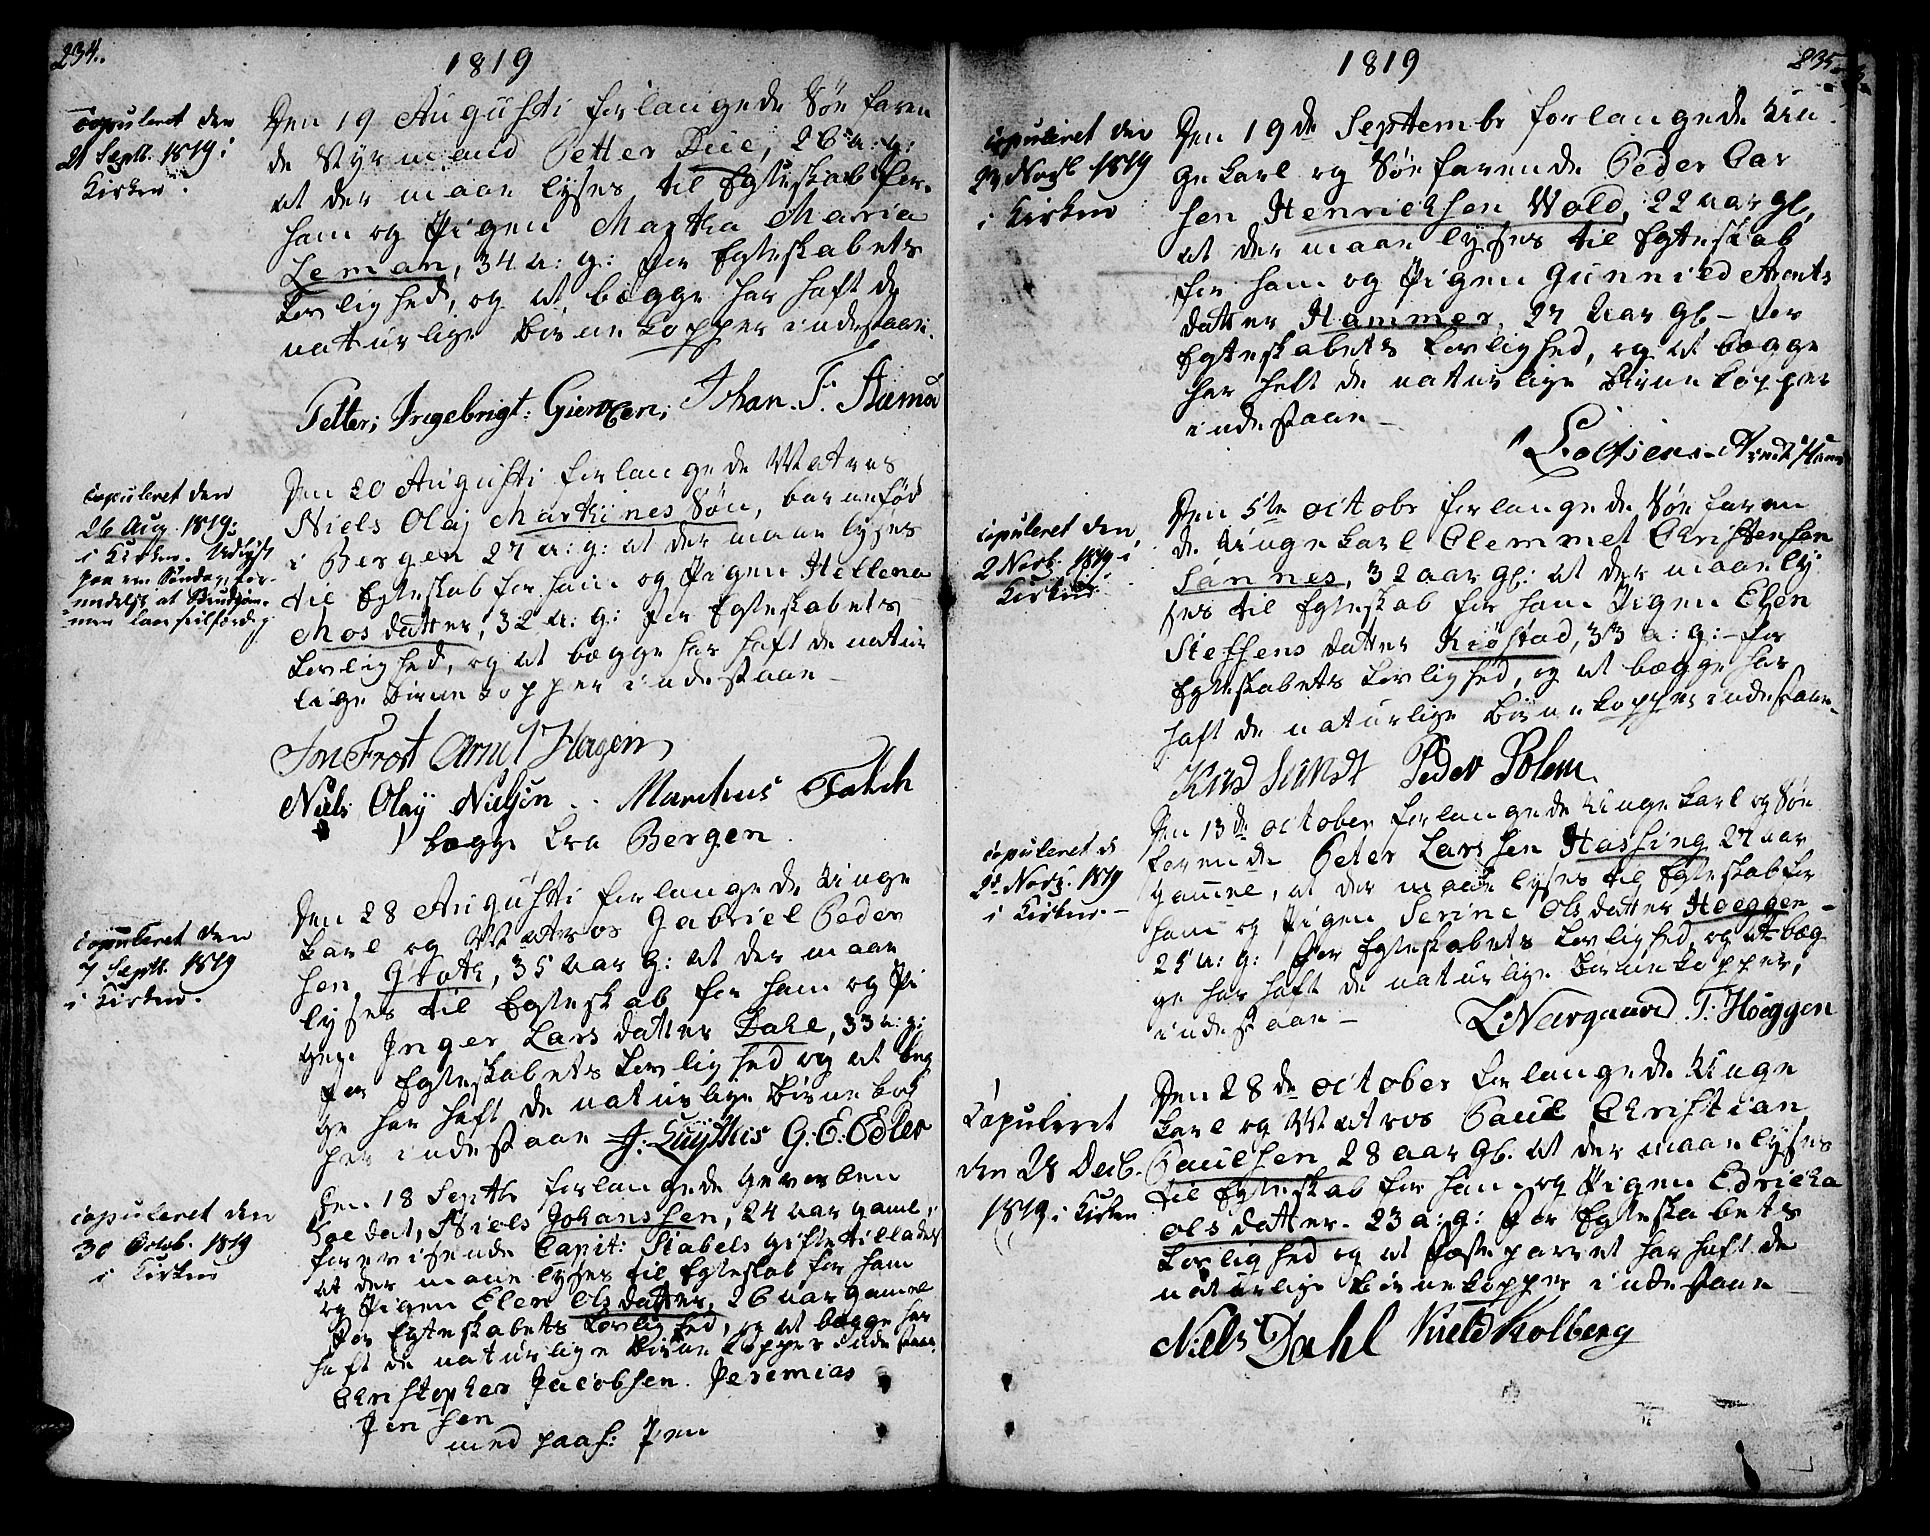 234.
1819
Copuleret den
21 Septb. 1819 i
Kirken.
Den 19 Augusti forlangede Søe faren
de Styrmand Petter Due, 26 a: g:
at der maae lyses til Egteskab for
ham og Pigen Martha Maria
Leman, 34 a: g: for Egteskabets
Lovlighed, og at begge har haft de
naturlige Børne kopper indestaae.
Petter; Ingebrigt: Johan. F.
Copuleret den
26 Aug. 1819:
i Kirken. Udlyst
paa en Søndag for-
Den 20 Augusti forlangede Matros
Niels Olaj Martines Søn, barnefød
i Bergen 27 a: g: at der maae lyses
til Egteskab for ham og Pigen Hellena
Mos datter, 32 a: g: for Egteskabets
Lovlighed, og at begge har haft de natur
lige Børnekopper indestaae
Jn Frost Arnt Hagen
Niels Olaij Nielsen .. Marthus Falch
begge fra Bergen
Copuleret den
7 Septb. 1819
i Kirken.
Den 28 Augusti forlangede Unge
karl og Matros Gabriel Peder
sen Groth, 35 aar g: at der maae
lyses til Egteskab for ham og Pi
gen Inger Lars datter Dahl, 33 a: g:
for Egteskabets Lovlighed og at beg
ge har haft de naturlige Børne kop
per indestaae G: E: Edler
Copuleret den
30 Octob. 1819
i Kirken
Den 18 Septbr forlangede Geworben
Soldat, Niels Johanssen, 24 aar gaml,
forevisende Capit: Stabels giftetilladels
at der maae lyses til Egteskab for ham
og Pigen Elen Ols datter, 26 aar gamel
for Egteskabets Lovlighed, og at begge har
haft de naturlige Børne kopper inde staae
Christopher Jacobsen. Jeremias
Jensen
med paah: Pen
235.
1819
Copuleret den
23 Novb 1819
i Kirken
Den 19de Septembr forlangede Un
ge karl og Søefarende Peder Lar
sen Henrichsen Wold, 22 aar gl,
at der maae lyses til Egteskab
for ham og Pigen Gunnild Arents
datter Hammer, 27 aar gl - for
Egteskabets Lovlighed, og at begge
har haft de naturlige Børnekopper
indestaae -
Copuleret den
2 Novb. 1819 i
Kirken
Den 5te octobr forlangede Søe faren
de Ungekarl Clemmet Christensen
Sannes, 32 aar gl: at der maae ly
ses til Egteskab for ham Pigen Elen
Steffens datter Kiøstad, 33 a: g: - for
Egteskabets Lovlighed, og at begge har
haft de naturlige Børnekopper indestaae
Knud Sundt Peder Solem
Copuleret d
Novb. 1819
i Kirken.
Den 13de october forlangede Ungekarl og Søe
farende Peter Larssen Hassing 27 aar
gamel, at der maae lyses til Egteskab for
ham og Pigen Serine Ols datter Hoeggen -
25 a: g: for Egteskabets Lovlighed og at beg
ge har haft de naturlige Børnekopper,
indestaae - L: Neergaard T: Hoeggen
Copuleret
den 28 Decb.
1819 i Kirken
Den 28de october forlangede Unge
karl og Matros Paul Christian
Paulsen 28 aar gl. at der maae lyses
til Egteskab for ham og Pigen Edricka
Ols datter. 23 a: g: for Egteskabets
Lovlighed og at Fæsteparret har haft de
naturlige Børnekopper indestaae
Niels Dahl Kield Kolberg